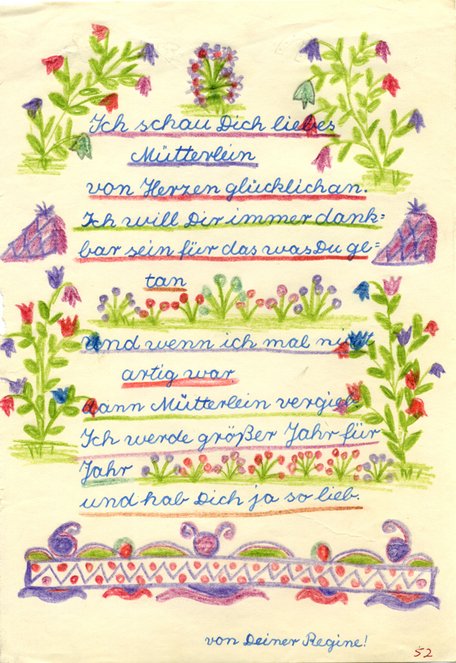 Ich schau Dich liebes
Mütterlein
von Herzen glücklich an.
Ich will Dir immer dank=
bar sein für das was Du ge=
tan
Und wenn ich mal nicht
artig war
dann Mütterlein vergieb
Ich werde größer Jahr für
Jahr
und hab Dich ja so lieb.
von Deiner Regine!
52